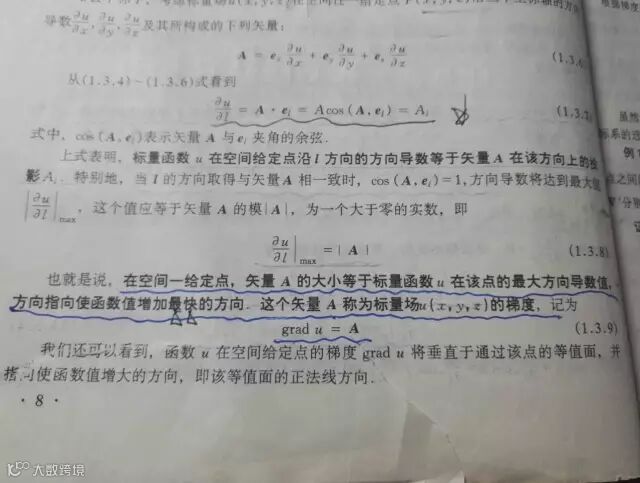 导数∂u/∂x, ∂u/∂y, ∂u/∂z及其所构成的下列矢量:
A = eₓ ∂u/∂x + e_y ∂u/∂y + e_z ∂u/∂z (1.3.6
从(1.3.4)~(1.3.6)式看到
∂u/∂l = A · e_l = A cos(A, e_l) = A_l (1.3.7)
式中, cos(A, e_l)表示矢量 A 与 e_l 夹角的余弦.
上式表明, 标量函数 u 在空间给定点沿 l 方向的方向导数等于矢量 A 在该方向上的投
影 A_l. 特别地, 当 l 的方向取得与矢量 A 相一致时, cos(A, e_l)=1, 方向导数将达到最大值
|∂u/∂l|max, 这个值应等于矢量 A 的模|A|, 为一个大于零的实数, 即
∂u/∂l|max = | A | (1.3.8)
也就是说, 在空间一给定点, 矢量 A 的大小等于标量函数 u 在该点的最大方向导数值,
方向指向使函数值增加最快的方向. 这个矢量 A 称为标量场u(x, y, z)的梯度, 记为
grad u = A (1.3.9)
我们还可以看到, 函数 u 在空间给定点的梯度 grad u 将垂直于通过该点的等值面, 并
指向使函数值增大的方向, 即该等值面的正法线方向.
· 8 ·
根据梯度
虽然
标系的
例1
点之间
分别
证
大数跨境